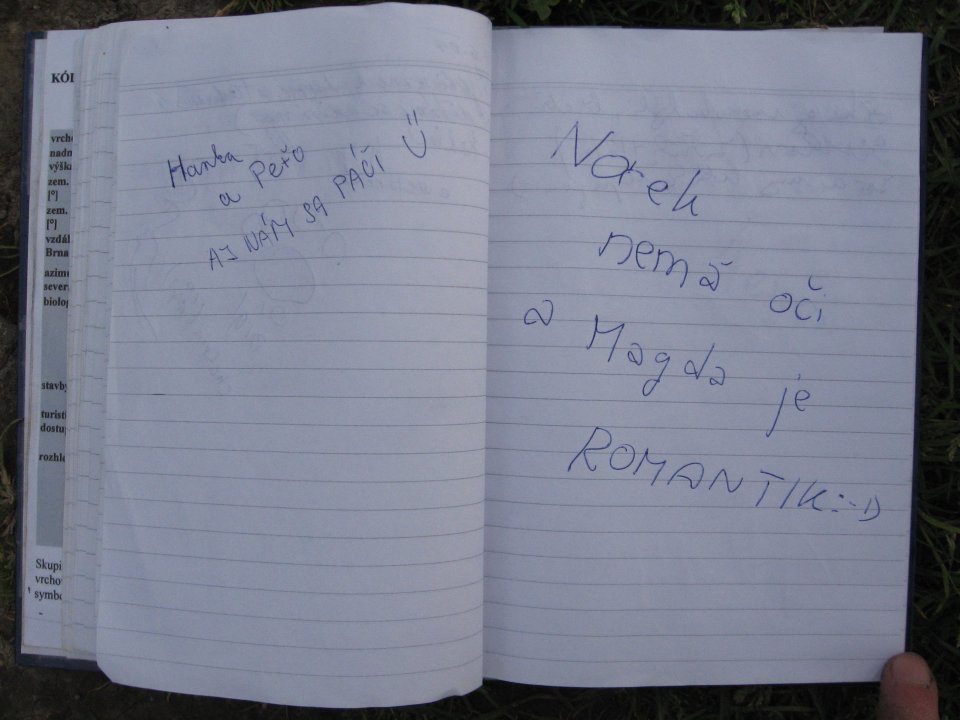 KÓ
vrch
nadn
výšk
zem.
[°]
zem.
[°]
vzdál
Brna
azim
sever
biolog
stavby
turisti
dostup
rozhl
Skupi
vrcho
symbo
Hanka
a Peťo
AJ NÁM SA PÁČI Ü
nemá oči
a Magda je
ROMANTIK:-D